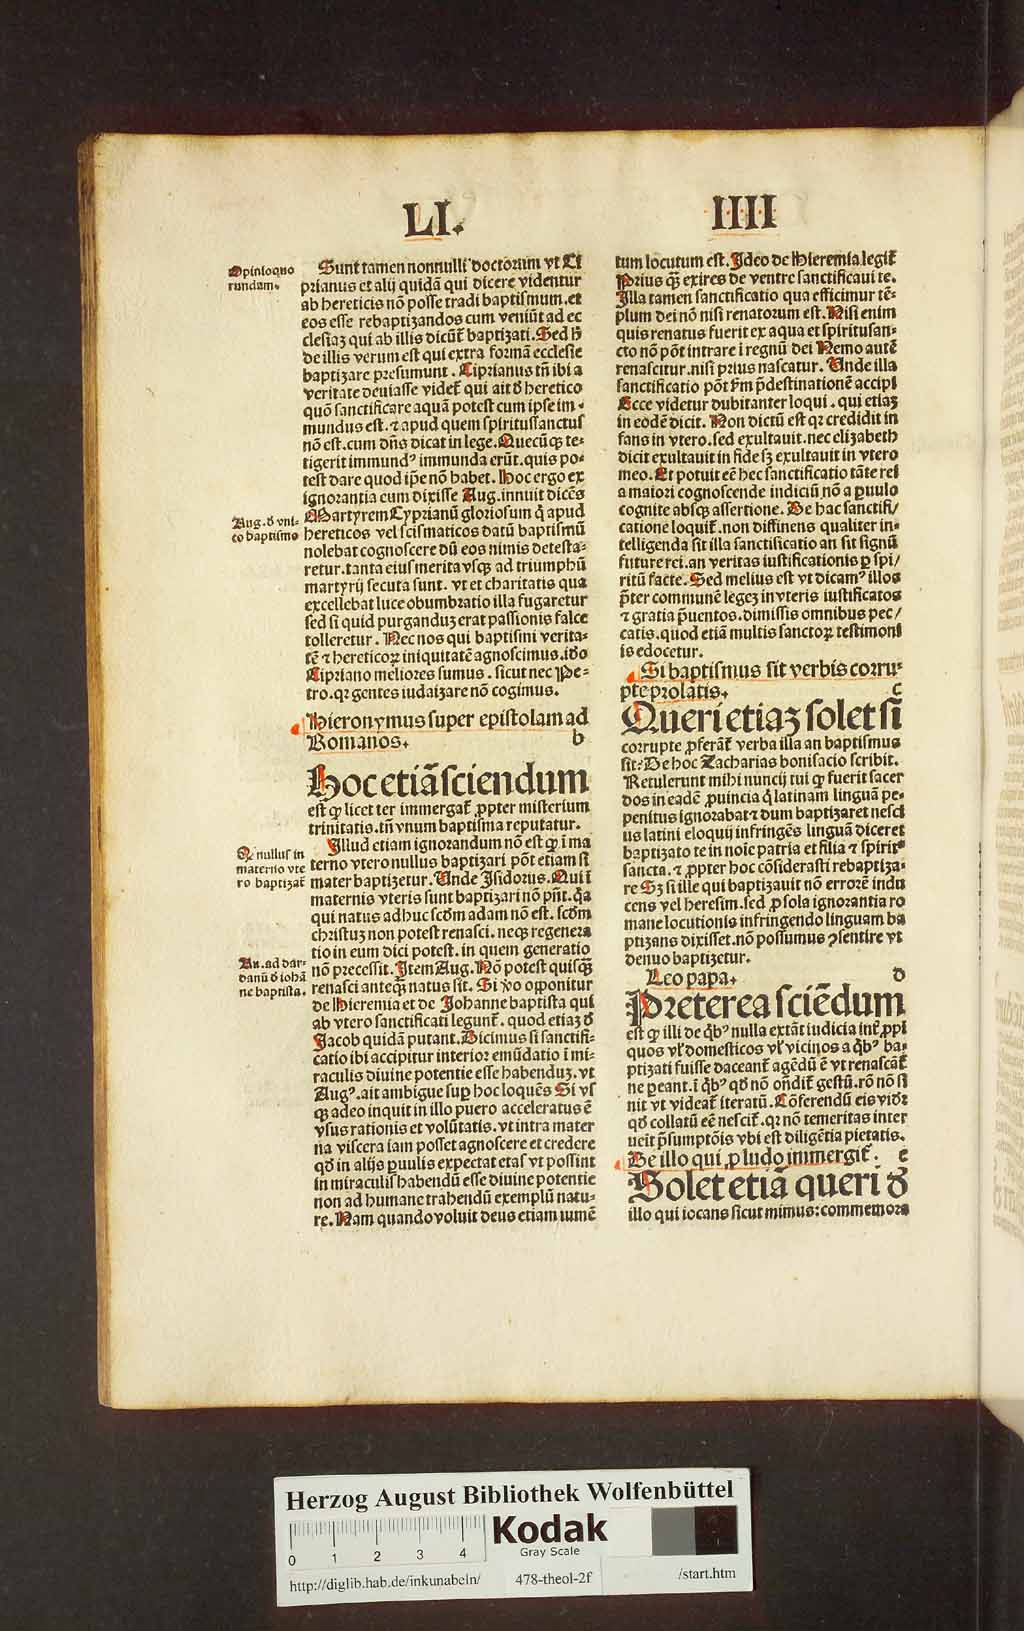 LI.
IIII
Opinio quo
rundam.
Sunt tamen nonnulli doctorum vt Ci
prianus et alij quidā qui dicere videntur
ab hereticis nō posse tradi baptismum. et
eos esse rebaptizandos cum veniūt ad ec
clesiaꝫ qui ab illis dicūt᷑ baptizati. Sed ħ
de illis verum est qui extra formā ecclesie
baptizare presumunt. Ciprianus tn̄ ibi a
veritate deuiasse videt᷑ qui ait ð heretico
quō sanctificare aquā potest cum ipse im-
mundus est. ⁊ apud quem spiritussanctus
nō est. cum dn̄s dicat in lege. Quecūqꝫ te-
tigerit immundꝰ immunda erūt. quis po-
test dare quod ip̄e nō habet. Hoc ergo ex
ignorantia eum dixisse Aug. innuit dicēs
Aug. ð vni-
co baptismo
Martyrem Cyprianū gloriosum q̇ apud
hereticos vel scismaticos datū baptismū
nolebat cognoscere dū eos nimis detesta-
retur. tanta eius merita vsqꝫ ad triumphū
martyrij secuta sunt. vt et charitatis qua
excellebat luce obumbratio illa fugaretur
sed si quid purganduꝫ erat passionis falce
tolleretur. Nec nos qui baptismi verita-
tē ⁊ hereticoꝝ iniquitatē agnoscimus. iðo
Cipriano meliores sumus. sicut nec Pe-
tro. qꝛ gentes iudaizare nō cogimus.
Hieronymus super epistolam ad
Romanos. b
Hoc etiā sciendum
est ꝙ licet ter immergat᷑ ꝓpter misterium
trinitatis. tn̄ vnum baptisma reputatur.
Q nullus in
materno vte
ro baptizat᷑
Illud etiam ignorandum nō est ꝙ ī ma
terno vtero nullus baptizari pōt etiam si
mater baptizetur. Unde Isidorus. Qui ī
maternis vteris sunt baptizari nō pn̄t. q̇a
qui natus adhuc scḋm adam nō est. scḋm
christuꝫ non potest renasci. neqꝫ regenera
tio in eum dici potest. in quem generatio
Au. ad dar-
danū ð iohā
ne baptista.
nō precessit. Item Aug. Nō potest quisqꝫ̄
renasci anteqꝫ̄ natus sit. Si ṽo opponitur
de Hieremia et de Johanne baptista qui
ab vtero sanctificati legunt᷑. quod etiaꝫ ð
Jacob quidā putant. Dicimus si sanctifi-
catio ibi accipitur interior emūdatio ī mi-
raculis diuine potentie esse habenduꝫ. vt
Augꝰ. ait ambigue suꝑ hoc loquēs Si vs
qꝫ adeo inquit in illo puero acceleratus ē
vsus rationis et volūtatis. vt intra mater
na viscera iam posset agnoscere et credere
qḋ in alijs ꝑuulis expectat etas vt possint
in miraculis habendū esse diuine potentie
non ad humane trahendū exemplū natu-
re. Nam quando voluit deus etiam iumē
tum locutum est. Ideo de Hieremia legit᷑
Prius qꝫ̄ exires de ventre sanctificaui te.
Illa tamen sanctificatio qua efficimur tē-
plum dei nō nisi renatorum est. Nisi enim
quis renatus fuerit ex aqua et spiritusan-
cto nō pōt intrare ī regnū dei Nemo autē
renascitur. nisi prius nascatur. Unde illa
sanctificatio pōt ẜm p̄destinationē accipi
Ecce videtur dubitanter loqui. qui etiaꝫ
in eodē dicit. Non dictū est qꝛ credidit in
fans in vtero. sed exultauit. nec elizabeth
dicit exultauit in fide sꝫ exultauit in vtero
meo. Et potuit eē hec sanctificatio tāte rei
a maiori cognoscende indiciū nō a ꝑuulo
cognite absqꝫ assertione. De hac sanctifi/
catione loquit᷑. non diffinens qualiter in-
telligenda sit illa sanctificatio an sit signū
future rei. an veritas iustificationis ꝑ spi/
ritū facte. Sed melius est vt dicamꝰ illos
p̄ter communē legeꝫ in vteris iustificatos
⁊ gratia p̄uentos. dimissis omnibus pec/
catis. quod etiā multis sanctoꝝ testimoni
is edocetur.
Si baptismus sit verbis corru-
pte prolatis. c
Queri etiaꝫ solet si
corrupte ꝓferāt᷑ verba illa an baptismus
sit: De hoc Zacharias bonifacio scribit.
Retulerunt mihi nuncij tui ꝙ fuerit sacer
dos in eadē ꝓuincia q̇ latinam linguā pe-
penitus ignorabat ⁊ dum baptizaret nesci
us latini eloquij infringēs linguā diceret
baptizato te in noīe patria et filia ⁊ spiritꝰ
sancta. ⁊ ꝓpter hoc cōsiderasti rebaptiza-
re Sꝫ si ille qui baptizauit nō errorē indu
cens vel heresim. sed ꝓ sola ignorantia ro
mane locutionis infringendo linguam ba
ptizans dixisset. nō possumus ꝯsentire vt
denuo baptizetur.
Leo papa. d
Preterea sciēdum
est ꝙ illi de q̇bꝰ nulla extāt iudicia int᷑ ꝓpi
quos vł domesticos vł vicinos a q̇bꝰ ba-
ptizati fuisse daceant᷑ agēdū ē vt renascāt᷑
ne ꝑeant. ī q̇bꝰ qḋ nō ondit᷑ gestū. rō nō si
nit vt videat᷑ iteratū. Cōferendū eis viðꝛ
qḋ collatū eē nescit᷑. qꝛ nō temeritas inter
ueit p̄sumptōis vbi est diligētia pietatis.
De illo qui ꝓ ludo immergit᷑. e
Solet etiā queri ð
illo qui iocans sicut mimus: commemora
Herzog August Bibliothek Wolfenbüttel
Kodak
Gray Scale
0 1 2 3 4
http://diglib.hab.de/inkunabeln/ 478-theol-2f /start.htm